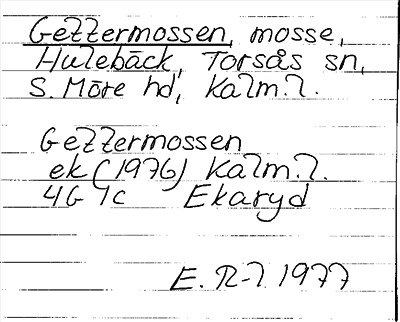 Gellermossen, mosse,
Hulebäck, Torsås sn,
S. Möre hd, Kalm.l.
Gellermossen
ek (1976) Kalm.l.
4G 1c Ekaryd
E. R-l. 1977